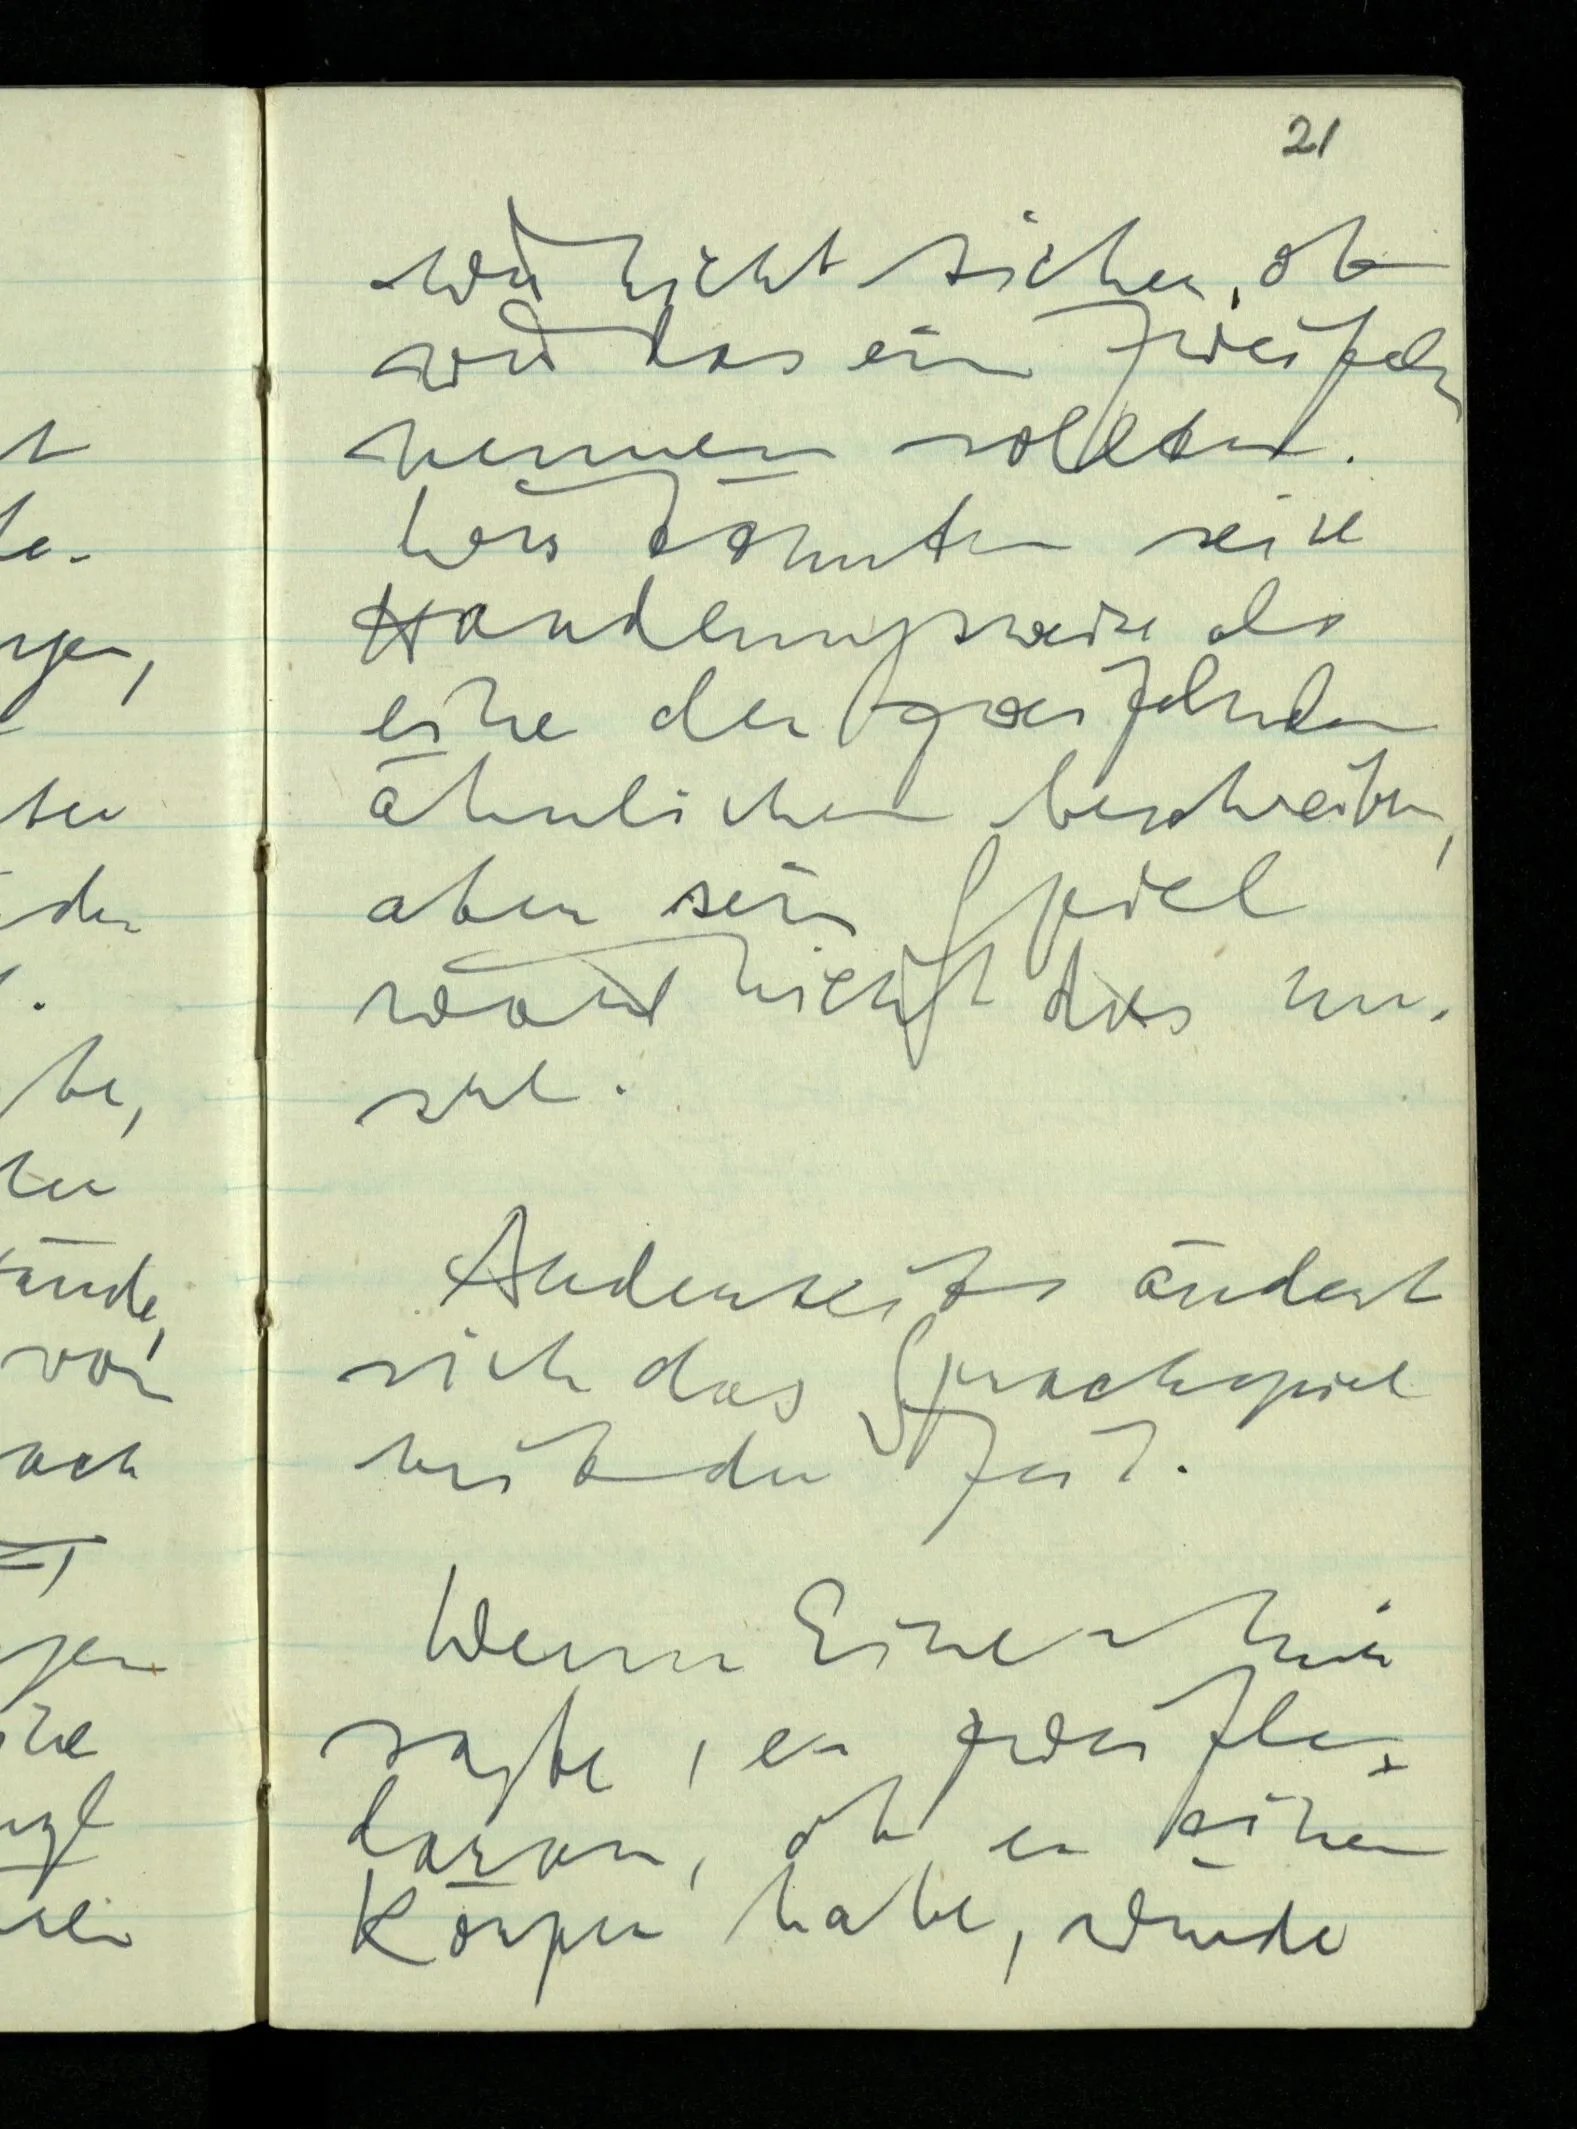 21
wir nicht sicher, ob
wir das ein Zweifeln
nennen sollten.
Wir könnten seine
Handlungsweise als
eine der zweifelnden
ähnlichen beschreiben,
aber sein Spiel
wäre nicht das un-
sre.
Anderseits ändert
sich das Sprachspiel
mit der Zeit.
Wenn Einer mir
sagte, er zweifle
daran, ob er einen
Körper habe, würde